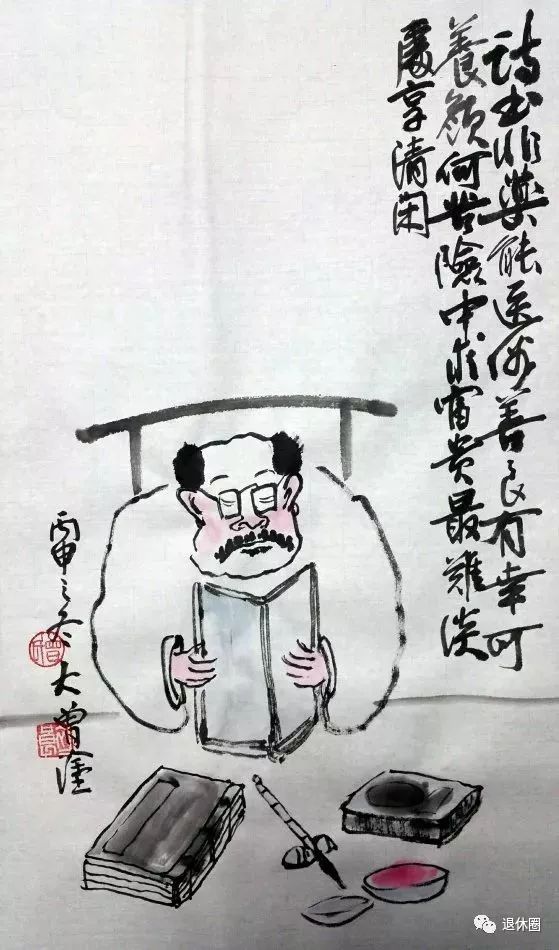 诗书非药能医俗善良有幸可
養颜何苦險中求富贵最難淡
處享清闲
丙申之冬大曾塗
退休圈